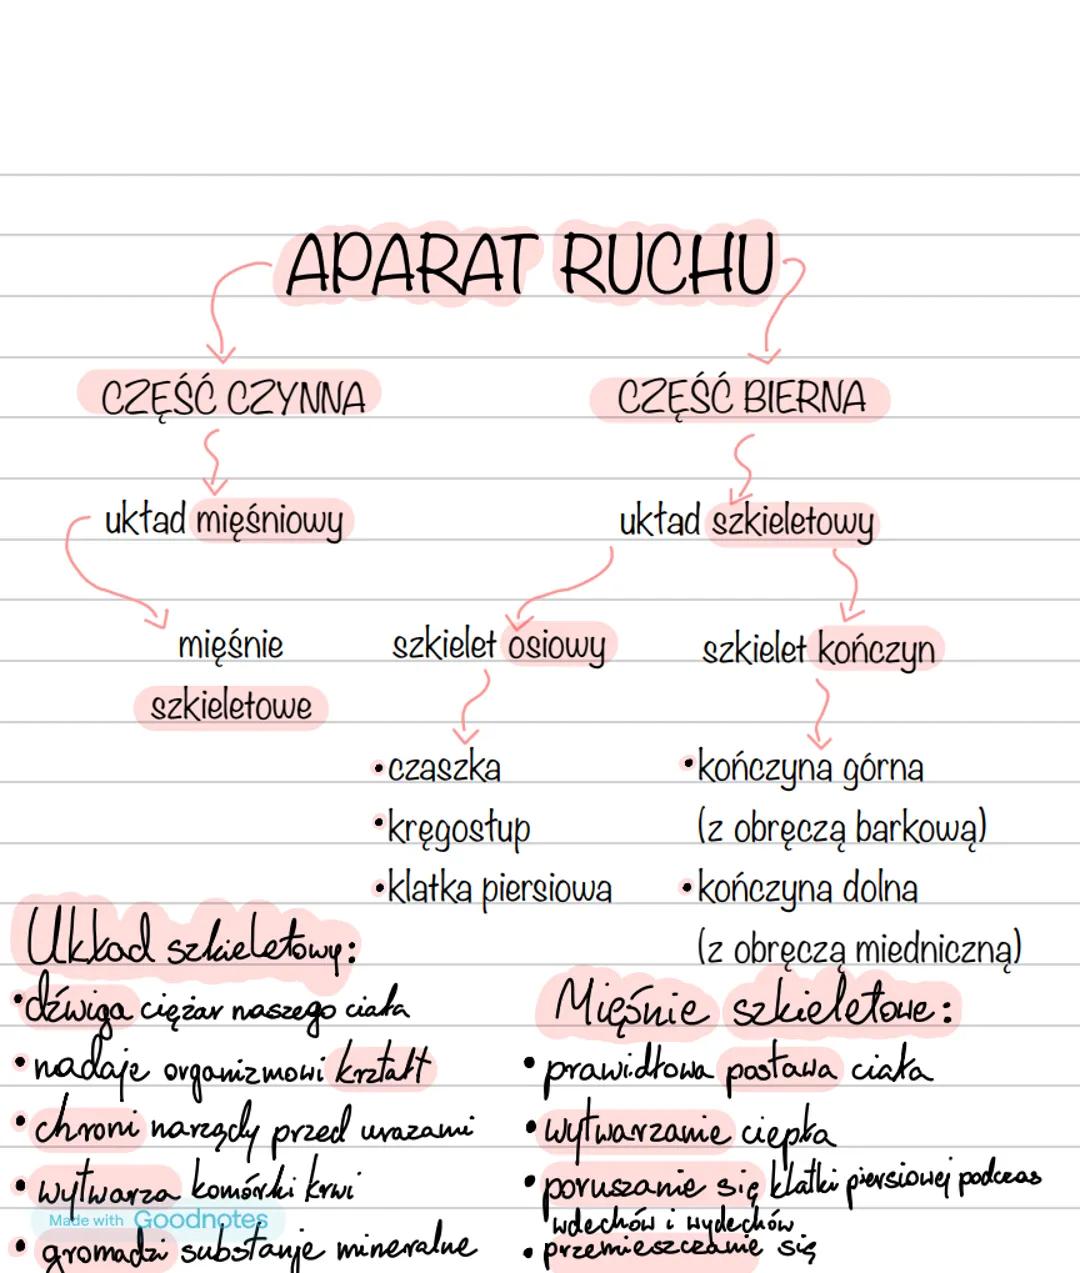 APARAT RUCHU
CZĘŚĆ CZYNNA
CZĘŚĆ BIERNA
układ mięśniowy
układ szkieletowy
mięśnie
szkieletowe
szkielet osiowy
szkielet kończyn
•czaszka
•kręgosłup
•klatka piersiowa
•kończyna górna
(z obręczą barkową)
•kończyna dolna
(z obręczą miedniczną)
Układ szkieletowy:
•dźwiga ciężar naszego ciała
•nadaje organizmowi kształt
•chroni narządy przed urazami
•wytwarza komórki krwi
•gromadzi substancje mineralne
Mięśnie szkieletowe:
•prawidłowa postawa ciała
•wytwarzanie ciepła
•poruszanie się klatki piersiowej podczas
wdechów i wydechów
•przemieszczanie się
Made with Goodnotes